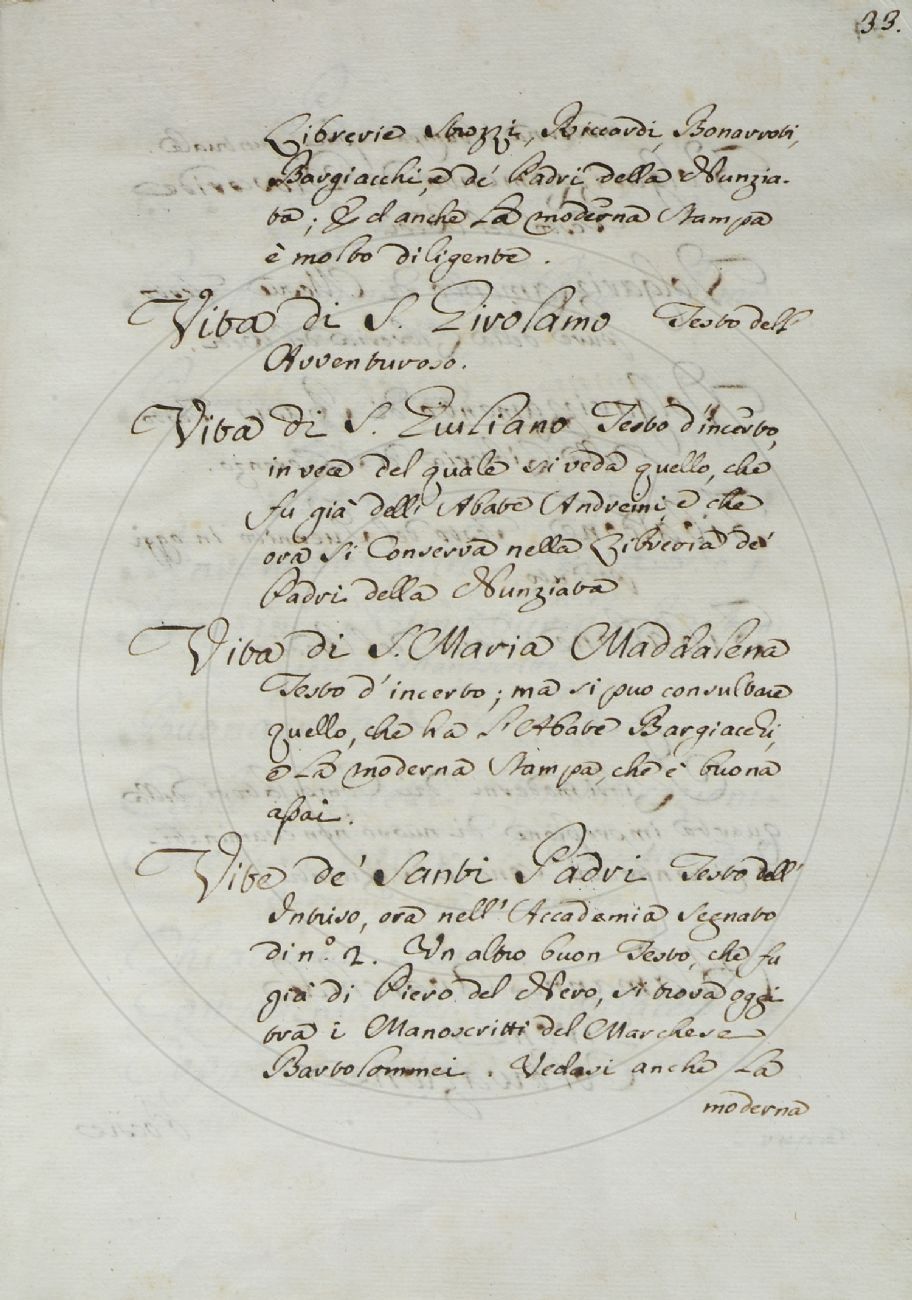 33.
Librerie Strozzi, Riccardi, Bonarroti,
Bargiacchi, e de' Padri della Nunzia-
ta; Ed anche La moderna Stampa
è molto diligente.
Vita di S. Girolamo Testo dell'
Avventuroso.
Vita di S. Giuliano Testo d'incerto,
in vece del quale si veda quello, che
fu già dell' Abate Andreini, e che
ora si Conserva nella Libreria de'
Padri della Nunziata
Vita di S. Maria Maddalena
Testo d'incerto; ma si puo consultare
quello, che ha l'Abate Bargiacchi,
e La moderna Stampa, che è buona
assai.
Vite de' Santi Padri Testo dell'
Intriso, ora nell' Accademia Segnato
di n.° 2. Un altro buon Testo, che fu
già di Piero del Nero, si trova oggi
tra i Manoscritti del Marchese
Bartolommei. Vedasi anche La
moderna